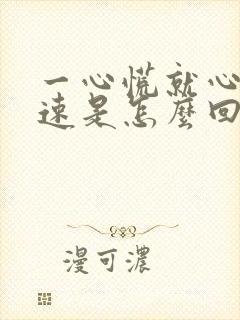 一心慌就心
速是怎麼回
漫可濃